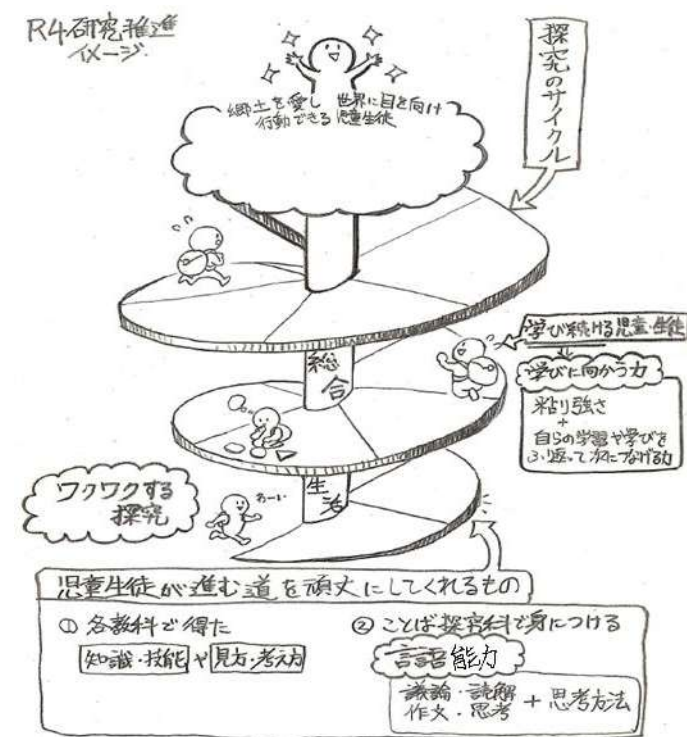 R4.研究推進
イメージ
探究のサイクル
郷土を愛し 世界に目を向け
行動できる 児童生徒
学び続ける児童・生徒
学びに向かう力
粘り強さ
+
自らの学習や学びを
ふり返って次につなげる力
総合
生活
ワクワクする
探究
わーい
児童生徒が進む道を頑丈にしてくれるもの
① 各教科で得た
知識・技能や見方・考え方
② ことば探究科で身につける
言語能力
議論・読解
作文・思考 + 思考方法